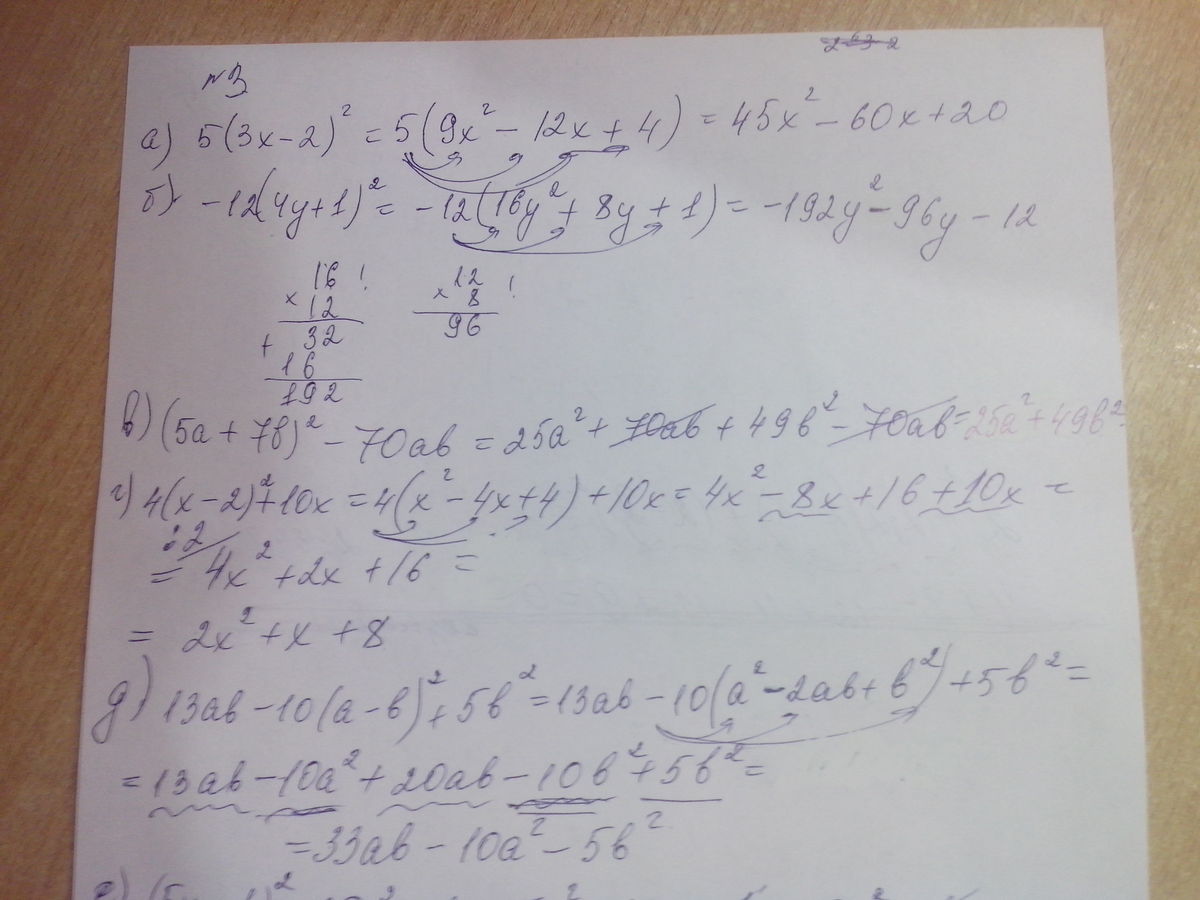 №3
а) 5(3x-2)² = 5(9x² - 12x + 4) = 45x² - 60x + 20
б) -12(4y+1)² = -12(16y² + 8y + 1) = -192y² - 96y - 12
16 ! 12 !
× 12 × 8
+ 32 96
16
192
в) (5a + 7b)² - 70ab = 25a² + 70ab + 49b² - 70ab = 25a² + 49b²
г) 4(x-2)² + 10x = 4(x² - 4x + 4) + 10x = 4x² - 8x + 16 + 10x =
:2
= 4x² + 2x + 16 =
= 2x² + x + 8
д) 13ab - 10(a-b)² + 5b² = 13ab - 10(a² - 2ab + b²) + 5b² =
= 13ab - 10a² + 20ab - 10b² + 5b² =
= 33ab - 10a² - 5b²